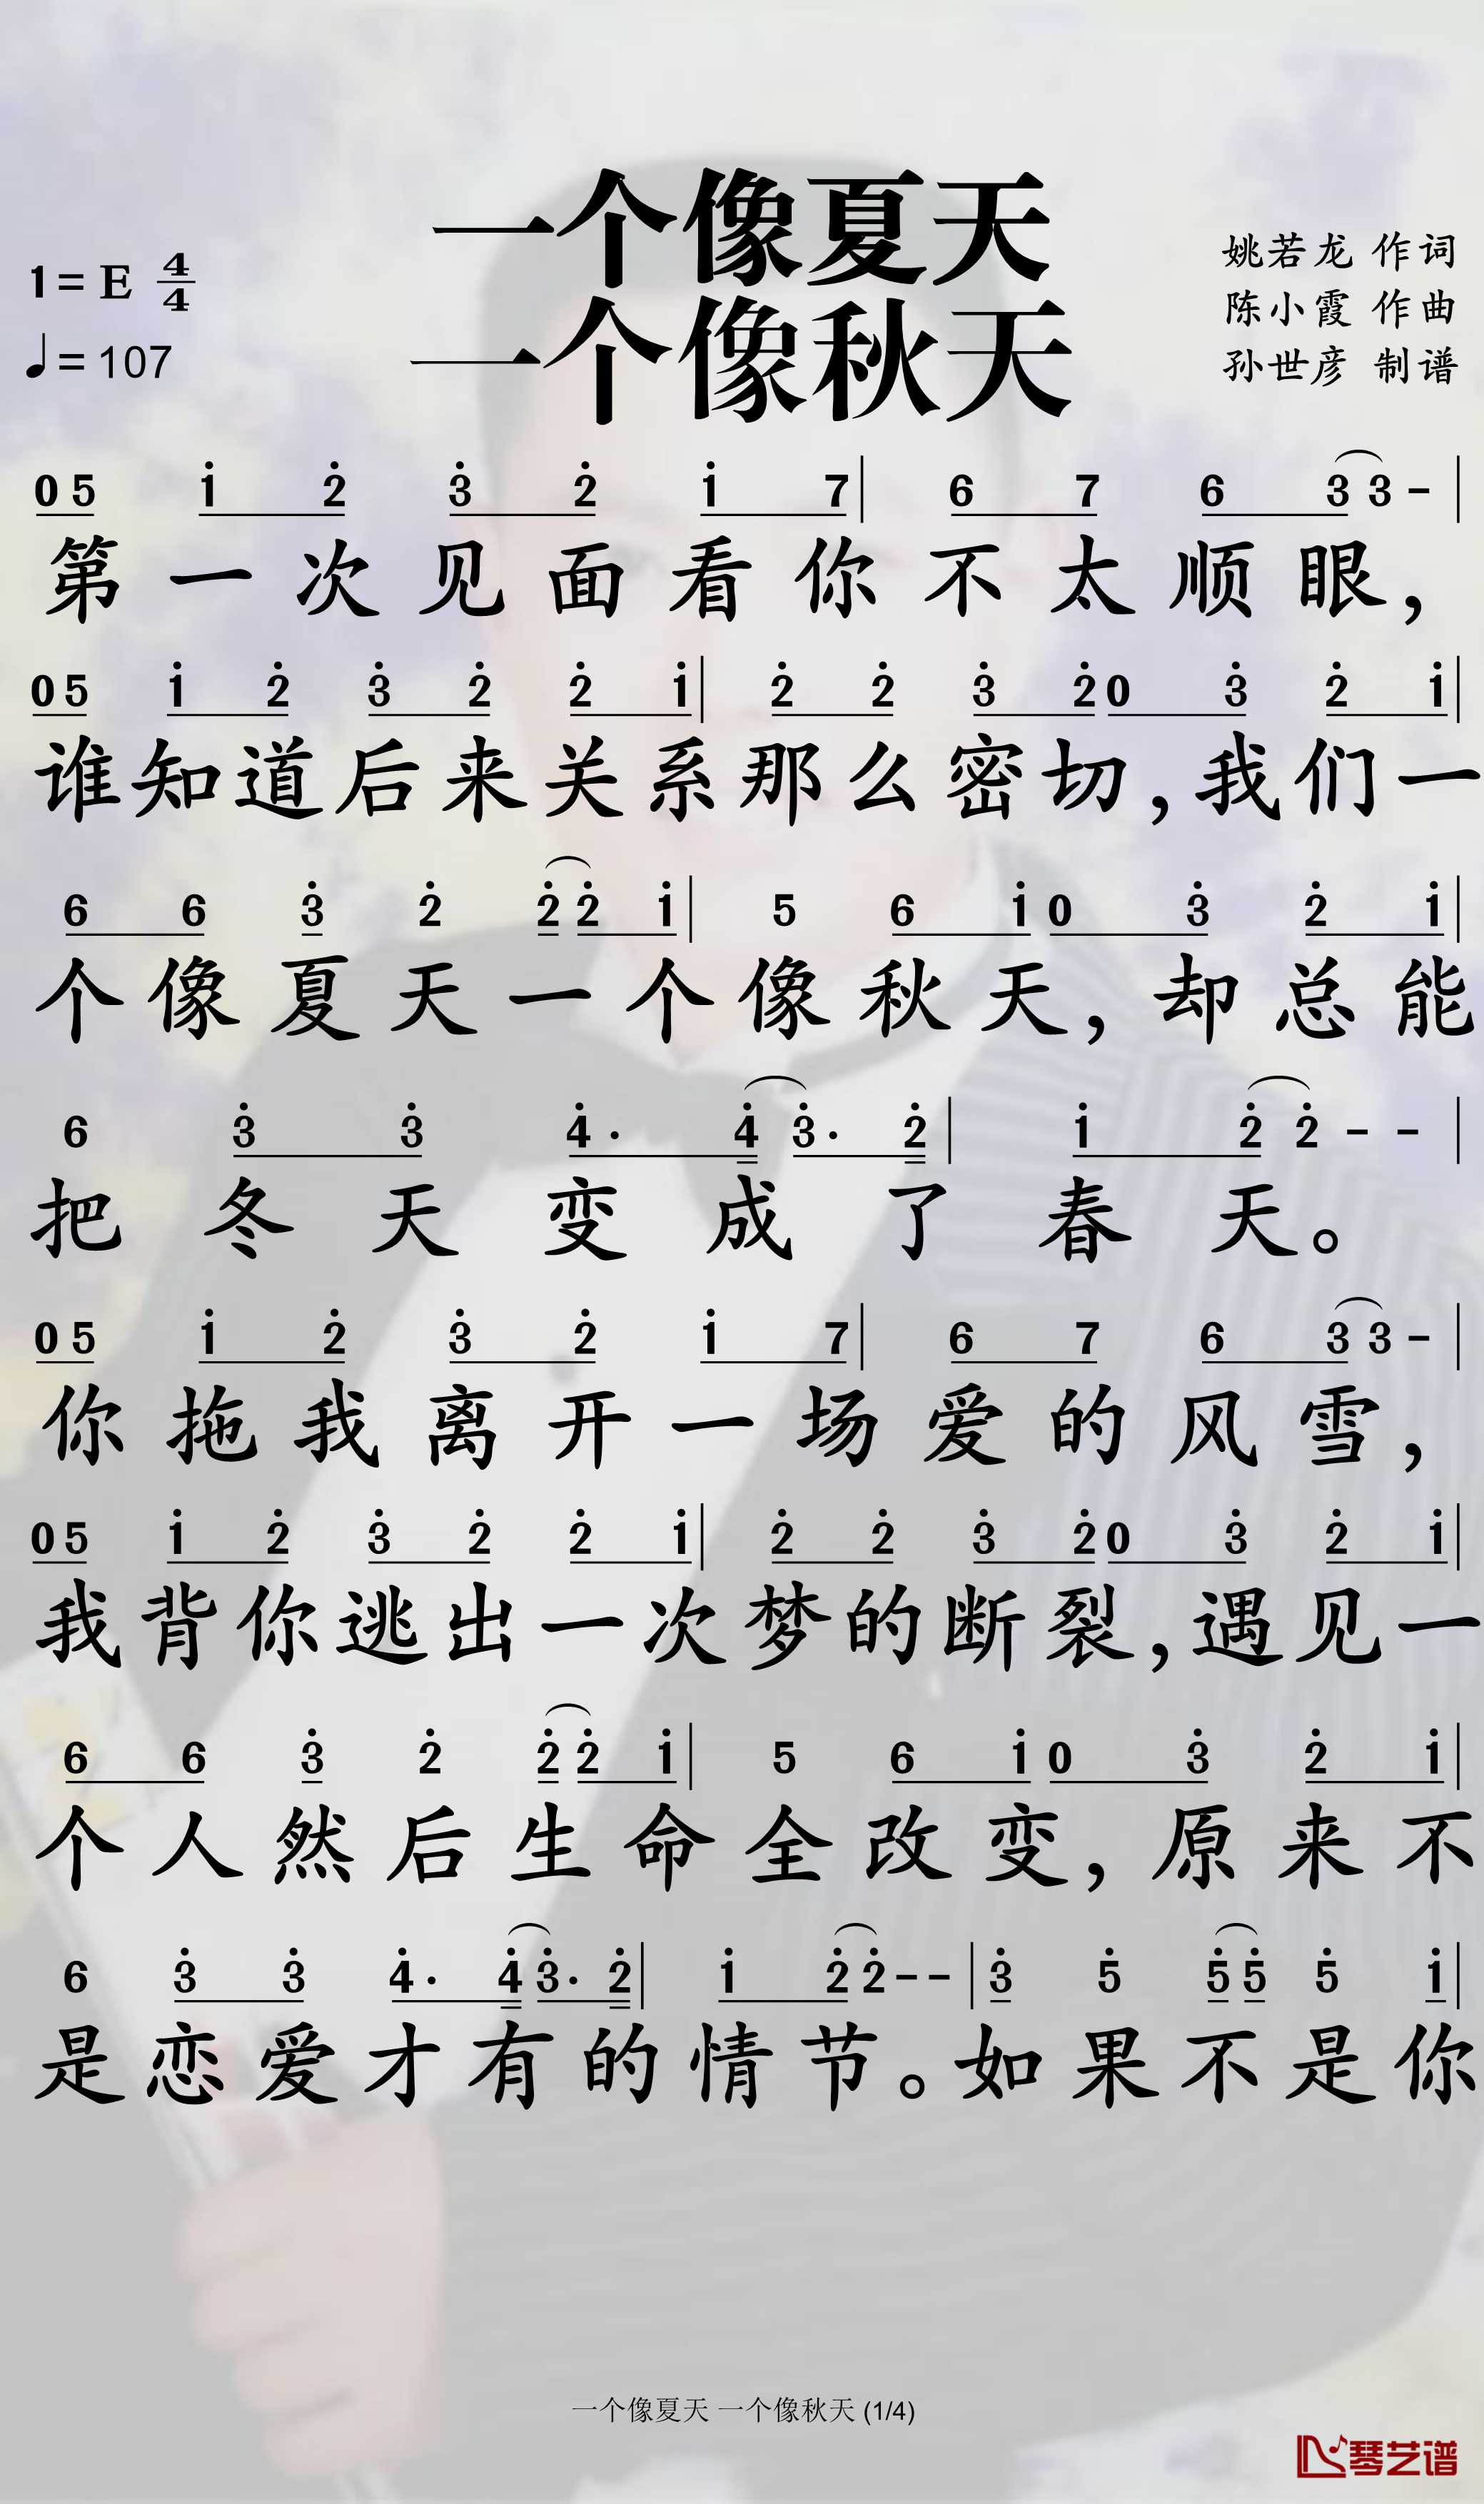 一个像夏天
一个像秋天
1=E 4/4
♩=107
姚若龙 作词
陈小霞 作曲
孙世彦 制谱
0 5 1̇ 2̇ 3̇ 2̇ 1̇ 7 | 6 7 6 3 3 - |
第一次见面看你不太顺眼，
0 5 1̇ 2̇ 3̇ 2̇ 2̇ 1̇ | 2̇ 2̇ 3̇ 2̇ 0 3̇ 2̇ 1̇ |
谁知道后来关系那么密切，我们一
6 6 3̇ 2̇ 2̇ 2̇ 1̇ | 5 6 1̇ 0 3̇ 2̇ 1̇ |
个像夏天一个像秋天，却总能
6 3̇ 3̇ 4̇· 4̇ 3̇· 2̇ | 1̇ 2̇ 2̇ - - |
把冬天变成了春天。
0 5 1̇ 2̇ 3̇ 2̇ 1̇ 7 | 6 7 6 3 3 - |
你拖我离开一场爱的风雪，
0 5 1̇ 2̇ 3̇ 2̇ 2̇ 1̇ | 2̇ 2̇ 3̇ 2̇ 0 3̇ 2̇ 1̇ |
我背你逃出一次梦的断裂，遇见一
6 6 3̇ 2̇ 2̇ 2̇ 1̇ | 5 6 1̇ 0 3̇ 2̇ 1̇ |
个人然后生命全改变，原来不
6 3̇ 3̇ 4̇· 4̇ 3̇· 2̇ | 1̇ 2̇ 2̇ - - | 3̇ 5̇ 5̇ 5̇ 5̇ 1̇ |
是恋爱才有的情节。如果不是你
一个像夏天 一个像秋天 (1/4)
琴艺谱